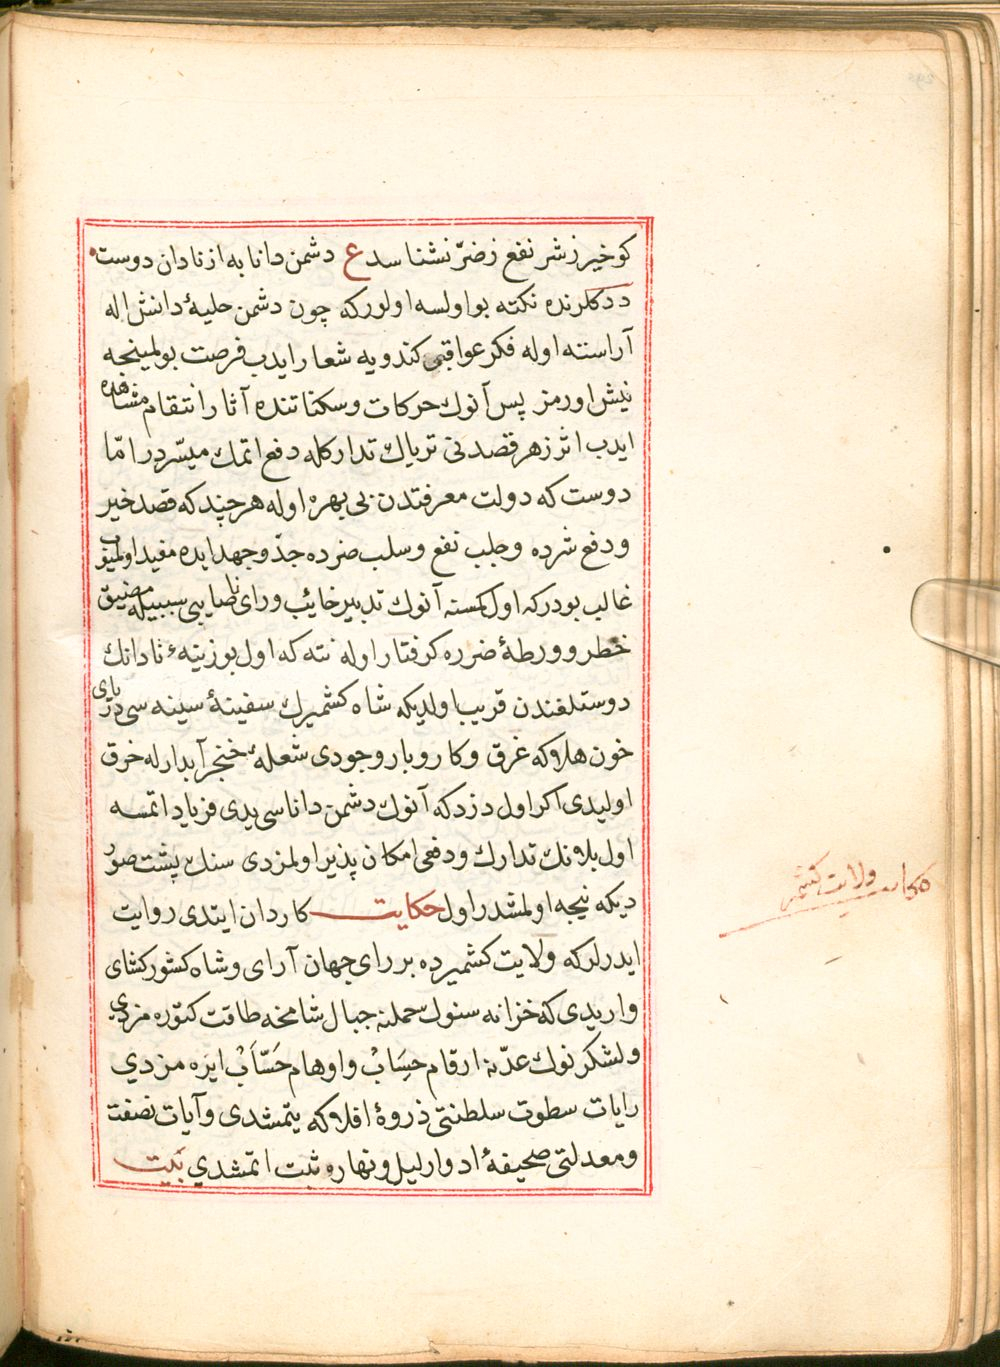 كو خير زشر نفع زضرّ نشناسد ع دشمن دانا به از نادان دوست
ددكلرنده نكته بو اولسه اولور كه چون دشمن حليهٔ دانش اله
آراسته اوله فكر عواقبى كندويه شعار ايدب فرصت بولمينجه
نيش اورمز پس آنوك حركات وسكناتنده آثار انتقام مشاهده
ايدب اثر زهر قصدنى ترياك تداركله دفع اتمك ميسّردر امّا
دوست كه دولت معرفتدن بى بهره اوله هر چند كه قصد خير
ودفع شرده وجلب نفع وسلب ضررده جدّ وجهد ايده مفيد اولميوب
غالب بودركه اول كمسنه آنوك تدبير خايب وراى ناصايبى سببيله مضيق
خطر وورطهٔ ضرره كرفتار اوله نته كه اول بوزينهٔ نادانك
دوستلغندن قريب اولديكه شاه كشميرك سفينهٔ سينه سى درياى
خون هلاكه غرق وكار وبار وجودى شعلهٔ خنجر آبدارله خرق
اوليدى اكر اول دزد كه آنوك دشمن داناسى يدى فرياد اتمسه
اول بلانك تدارك ودفعى امكان پذير اولمزدى سنك پشت صور
ديكه نيجه اولمشدر اول حكايت كاردان ايتدى روايت
ايدرلركه ولايت كشميرده بر راى جهان آراى وشاه كشور كشاى
واريدى كه خزانه سنوك حملنه جبال شامخه طاقت كتوره مزدى
ولشكرنوك عدّنه ارقام حِسَابْ واوهام حَسّاَبْ ايره مزدي
رايات سطوت سلطنتى ذروهٔ افلاكه يتمشدى وآيات نصفت
ومعدلتى صحيفهٔ ادوار ليل ونهاره ثبت اتمشدي بيت
حكايت ولايت كشمير